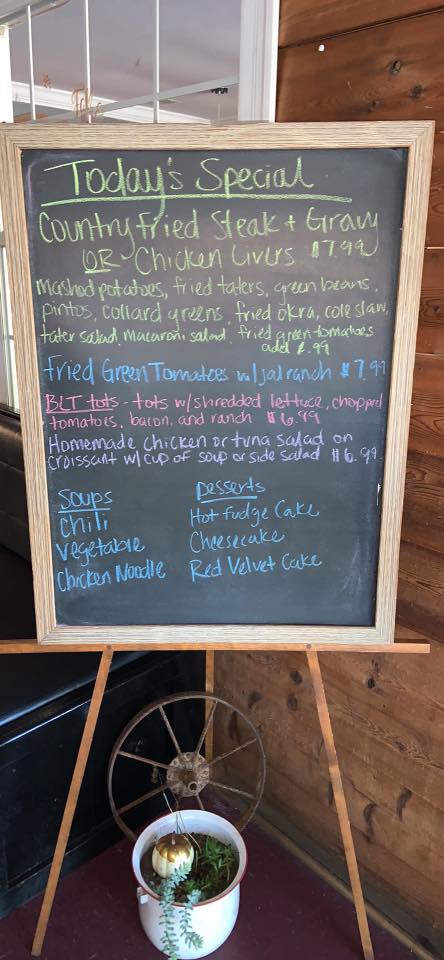 Today's Special
Country Fried Steak + Gravy
OR Chicken Livers $7.99
mashed potatoes, fried taters, green beans,
pintos, collard greens, fried okra, cole slaw,
tater salad, macaroni salad, fried green tomatoes
add .99
Fried Green Tomatoes w/ jal ranch $7.99
BLT tots - tots w/ shredded lettuce, chopped
tomatoes, bacon, and ranch $6.99
Homemade chicken or tuna salad on
croissant w/ cup of soup or side salad $6.99
Soups
Chili
Vegetable
Chicken Noodle
Desserts
Hot Fudge Cake
Cheesecake
Red Velvet Cake